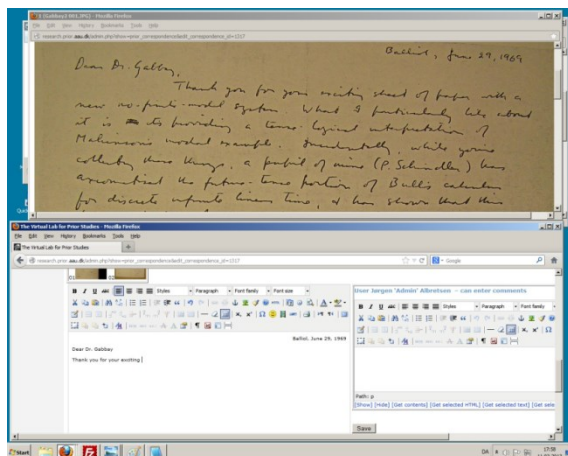 3 (Gabbay2 001.JPG) - Mozilla Firefox
File Edit View History Bookmarks Tools Help
research.prior.aau.dk/admin.php?show=prior_correspondence&edit_correspondence_id=1517
Balliol, June 29, 1969
Dear Dr. Gabbay,
Thank you for your exciting sheet of paper with a
new no-finite-model system. What I particularly like about
it is its providing a tense-logical interpretation of
Makinson's modal example. Incidentally, while you're
collecting these things, a pupil of mine (P. Schindler) has
axiomatised the future-tense portion of Bull's calculus
for discrete infinite linear time, & has shown that this
The Virtual Lab for Prior Studies - Mozilla Firefox
File Edit View History Bookmarks Tools Help
The Virtual Lab for Prior Studies
research.prior.aau.dk/admin.php?show=prior_correspondence&edit_correspondence_id=1517
Google
01 02
Styles Paragraph Font family Font size
Balliol, June 29, 1969
Dear Dr. Gabbay
Thank you for your exciting
User Jørgen 'Admin' Albretsen - can enter comments
Styles Paragraph Font family
Path: p
[Show] [Hide] [Get contents] [Get selected HTML] [Get selected text] [Get sele
Save
Start
DA
17:58